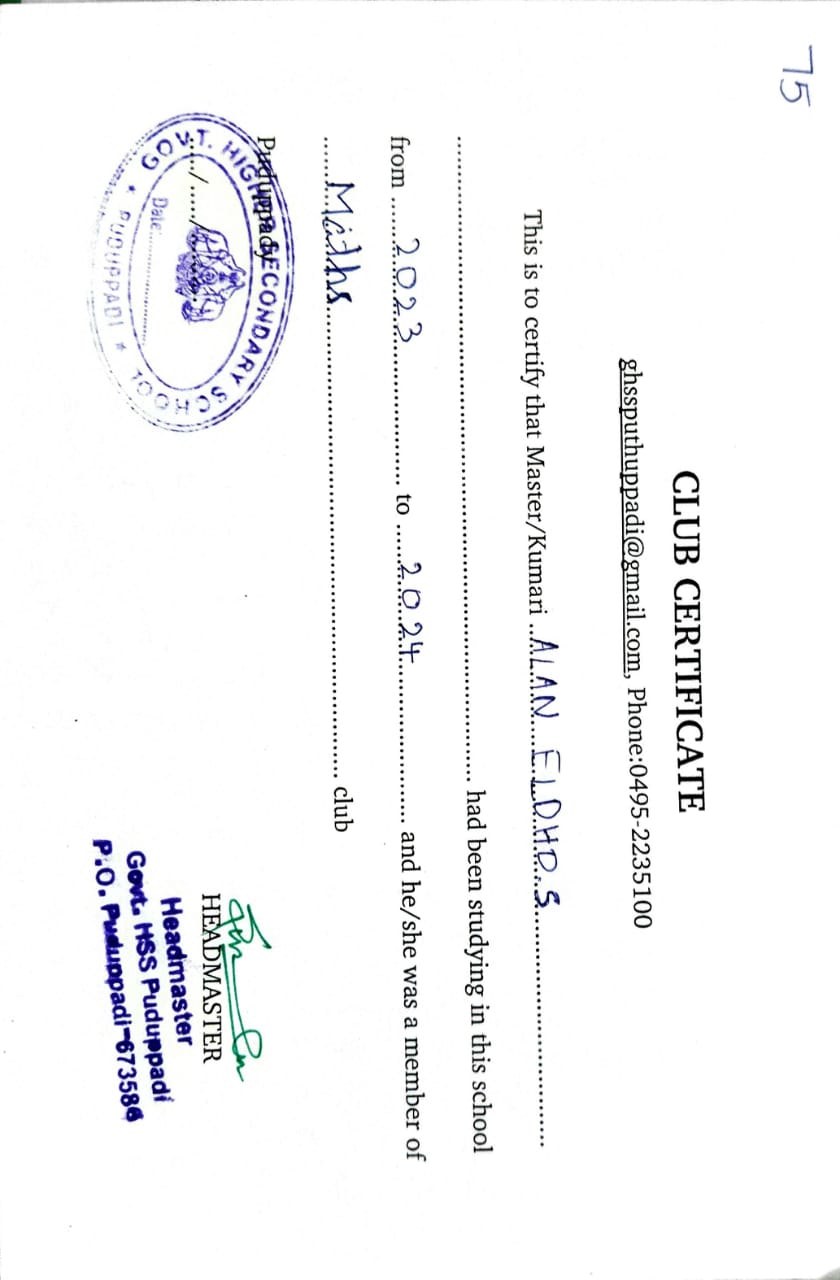 75
CLUB CERTIFICATE
ghssputhuppadi@gmail.com, Phone:0495-2235100
This is to certify that Master/Kumari ..ALAN ELDHO.S..........
.......... had been studying in this school
from ......2023.......... to ......2024.......... and he/she was a member of
......Maths.......... club
Puduppady
...../...../.....
GOVT. HIGHER SECONDARY SCHOOL
* PUDUPPADI *
Date:..........
HEADMASTER
Headmaster
Govt. HSS Puduppadi
P.O. Puduppadi-673586